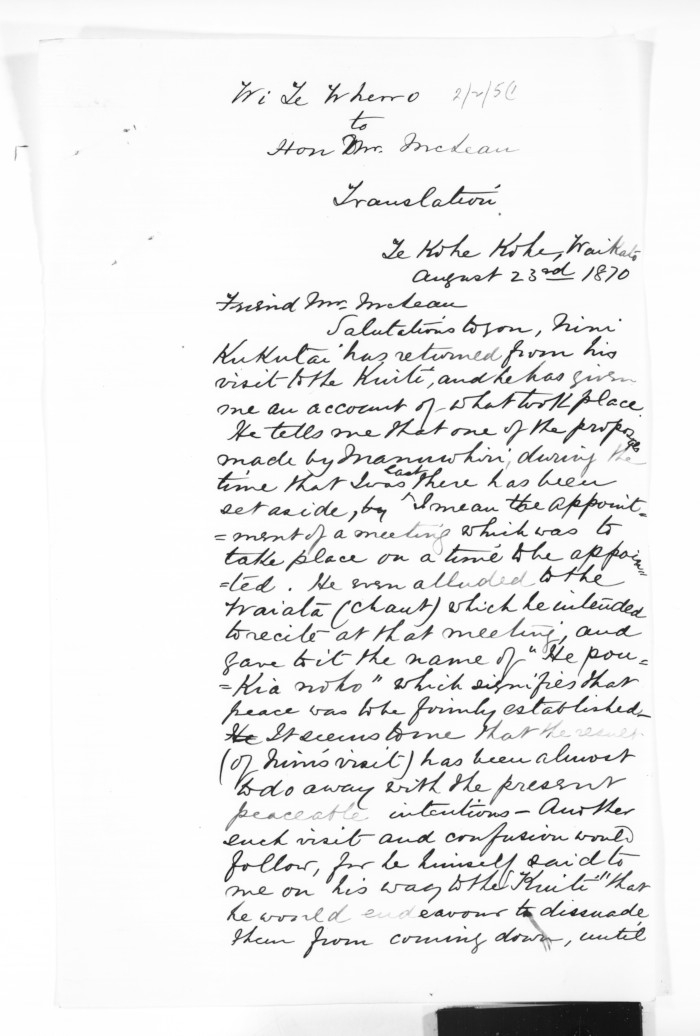 Wi Te Wherro 2/2/5
to
Hon Mr. McLean
Translation.
Te Kohe Kohe, Waikato
August 23rd 1870
Friend Mr. McLean
Salutations to you, Nini
Kukutai has returned from his
visit to the Kuiti, and he has given
me an account of what took place.
He tells me that one of the proposals
made by Manuwhiri, during the
time that I was last there has been
set aside, by I mean the appoint=
=ment of a meeting which was to
take place on a time to be appoin=
=ted. He even alluded to the
Waiata (chaut) which he intended
to recite at that meeting, and
gave to it the name of "He pou=
=Kia noho" which signifies that
peace was to be firmly established.
He It seems to me that the result
(of Nini's visit) has been almost
to do away with the present
peaceable intentions - Another
such visit and confusion would
follow, for he himself said to
me on his way to the "Kuiti" that
he would endeavour to dissuade
them from coming down, until